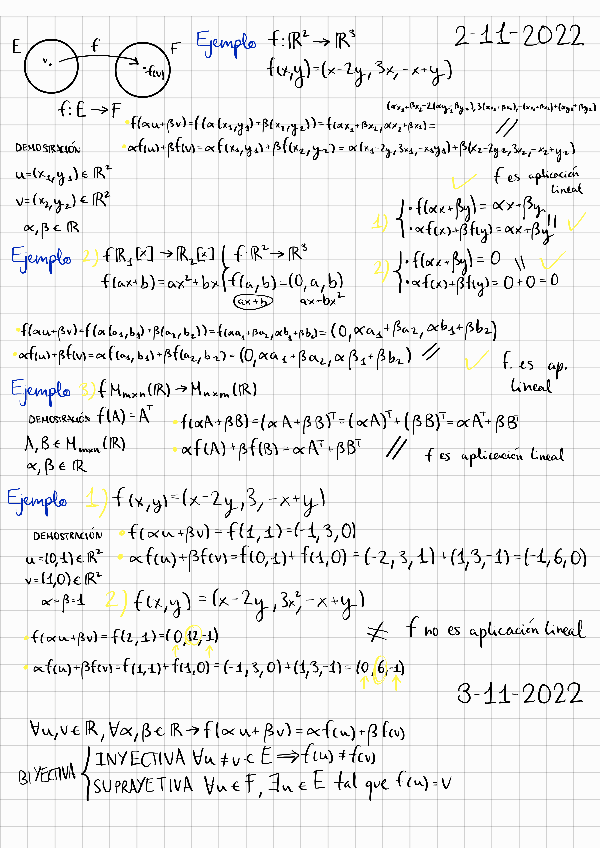 2-11-2022
E f F
v. ·f(v)
f: E → F
Ejemplo f: ℝ² → ℝ³
f(x,y)=(x-2y, 3x, -x+y)
· f(αu+βv)=f(α(x₁,y₁)+β(x₂,y₂))=f(αx₁+βx₂, αx₂+βx₂)=
DEMOSTRACIÓN · αf(u)+βf(v)=αf(x₁,y₁)+βf(x₂,y₂)=α(x₁-2y, 3x₁, -x₁y₁)+β(x₂-2y₂, 3x₂, -x₂+y₂) //
u=(x₁,y₁)∈ℝ²
v=(x₂,y₂)∈ℝ²
α,β∈ℝ
f es aplicación lineal
1) { · f(αx+βy)=αx+βy
· αf(x)+βf(y)=αx+βy //
2) { · f(αx+βy)=0 //
· αf(x)+βf(y)=0+0=0
Ejemplo 2) f ℝ₁[x]→ℝ₂[x] { f: ℝ²→ℝ³
f(ax+b)=ax²+bx { f(a,b)=(0,a,b)
ax+b ax-bx²
· f(αu+βv)=f(α(a₁,b₁)+β(a₂,b₂))=f(αa₁+βa₂, αb₁+βb₂)=(0, αa₁+βa₂, αb₁+βb₂)
· αf(u)+βf(v)=αf(a₁,b₁)+βf(a₂,b₂)=(0, αa₁+βa₂, αβ₁+βb₂) //
f. es ap. lineal
Ejemplo 3) f Mₘₓₙ(ℝ)→Mₙₓₘ(ℝ)
DEMOSTRACIÓN f(A)=Aᵀ · f(αA+βB)=(αA+βB)ᵀ=(αA)ᵀ+(βB)ᵀ=αAᵀ+βBᵀ
A,B∈Mₘₓₙ(ℝ) · αf(A)+βf(B)=αAᵀ+βBᵀ // f es aplicación lineal
α,β∈ℝ
Ejemplo 1) f(x,y)=(x-2y, 3, -x+y)
DEMOSTRACIÓN · f(αu+βv)=f(1,1)=(-1,3,0)
u=(0,1)∈ℝ² · αf(u)+βf(v)=f(0,1)+f(1,0)=(-2,3,1)+(1,3,-1)=(-1,6,0)
v=(1,0)∈ℝ²
α=β=1 2) f(x,y)=(x-2y, 3x², -x+y)
· f(αu+βv)=f(2,1)=(0,12,-1) ≠ f no es aplicación lineal
· αf(u)+βf(v)=f(1,1)+f(1,0)=(-1,3,0)+(1,3,-1)=(0,6,-1)
3-11-2022
∀u,v∈ℝ, ∀α,β∈ℝ→f(αu+βv)=αf(u)+βf(v)
BIYECTIVA { INYECTIVA ∀u≠v∈E ⇒ f(u)≠f(v)
SUPRAYETIVA ∀u∈F, ∃u∈E tal que f(u)=v